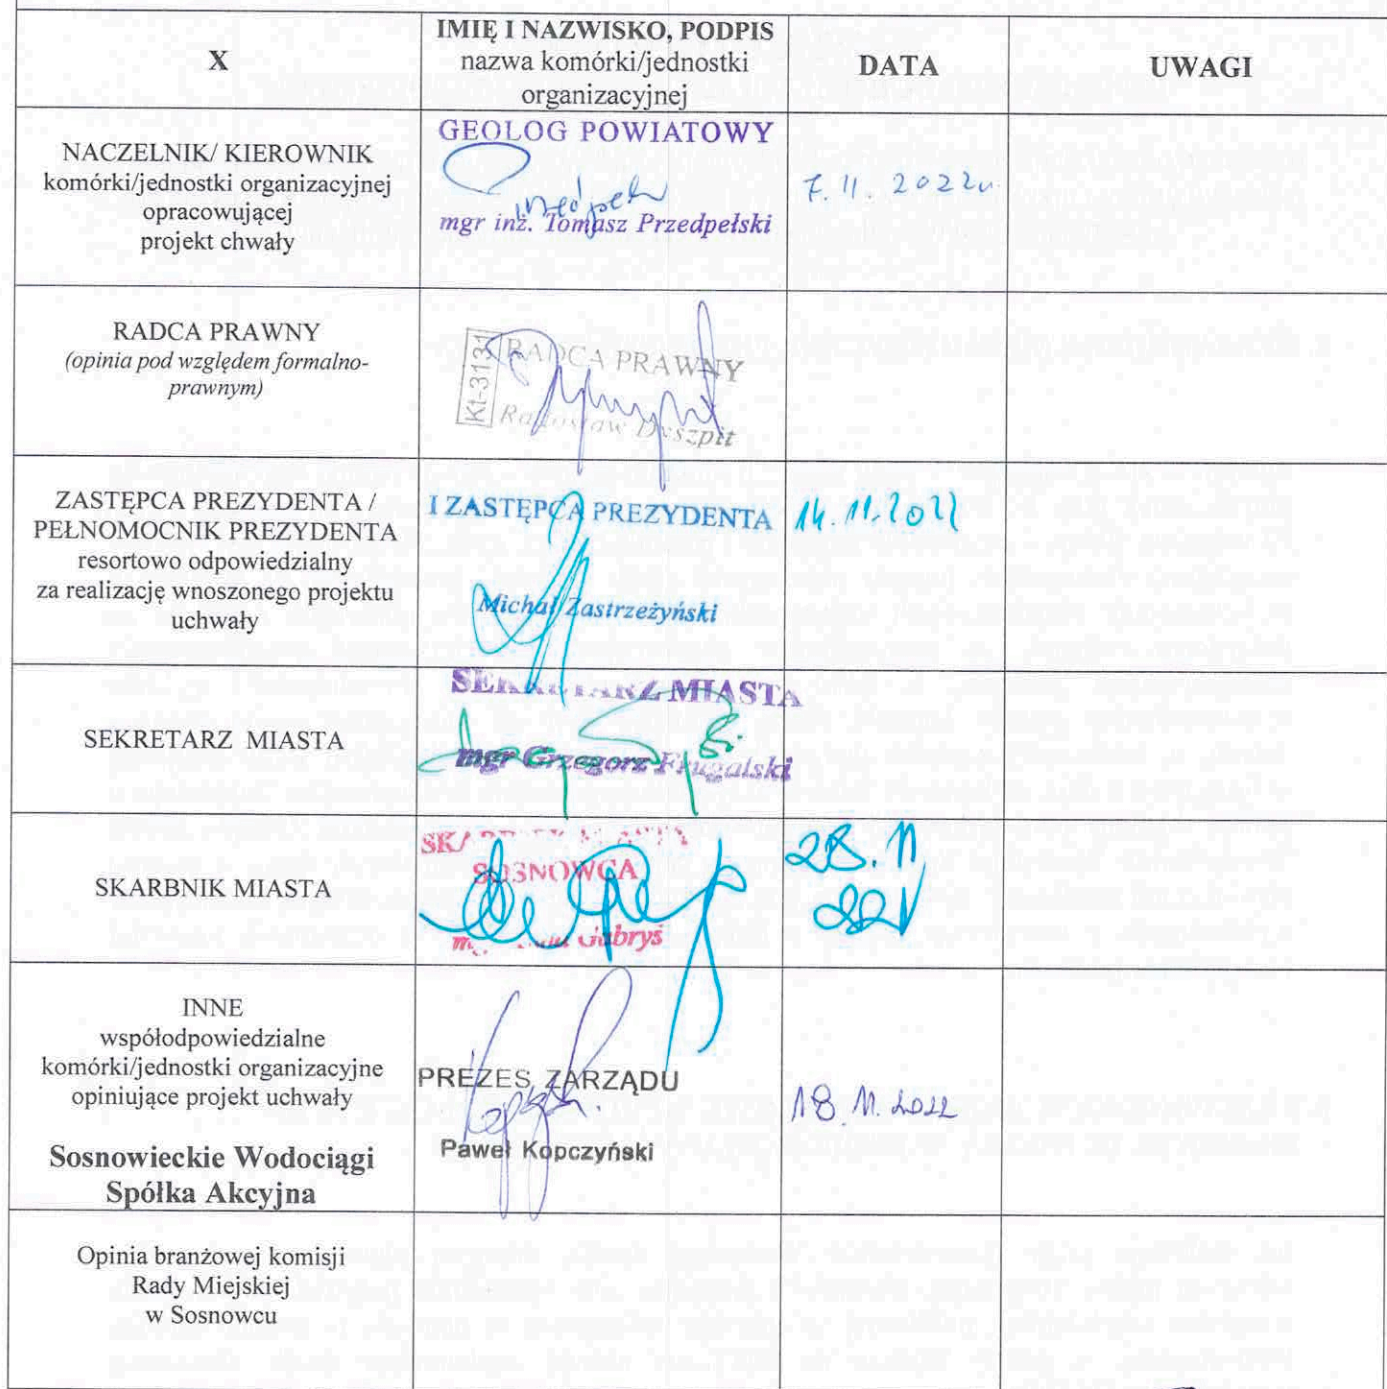 X
IMIĘ I NAZWISKO, PODPIS
nazwa komórki/jednostki
organizacyjnej
DATA
UWAGI
NACZELNIK/ KIEROWNIK
komórki/jednostki organizacyjnej
opracowującej
projekt chwały
GEOLOG POWIATOWY
mgr inż. Tomasz Przedpełski
7. 11. 2022r.
RADCA PRAWNY
(opinia pod względem formalno-
prawnym)
Kt-3131
RADCA PRAWNY
Radosław Deszpit
ZASTĘPCA PREZYDENTA /
PEŁNOMOCNIK PREZYDENTA
resortowo odpowiedzialny
za realizację wnoszonego projektu
uchwały
I ZASTĘPCA PREZYDENTA
Michał Zastrzeżyński
14. 11. 2022
SEKRETARZ MIASTA
SEKRETARZ MIASTA
mgr Grzegorz
SKARBNIK MIASTA
SKARBNIK MIASTA
SOSNOWCA
Gabryś
28. 11
22r
INNE
współodpowiedzialne
komórki/jednostki organizacyjne
opiniujące projekt uchwały
Sosnowieckie Wodociągi
Spółka Akcyjna
PREZES ZARZĄDU
Paweł Kopczyński
18. 11. 2022
Opinia branżowej komisji
Rady Miejskiej
w Sosnowcu